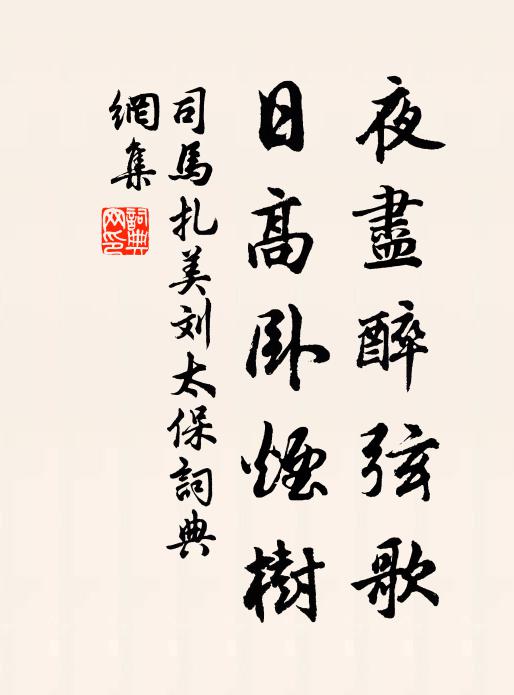 夜盡醉弦歌
日高卧煙樹
司馬扎美刘太保詞典
網集
詞典网印